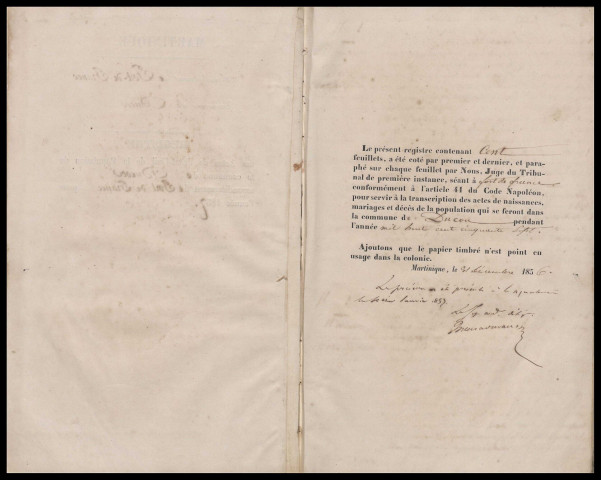 Le présent registre contenant Cent
feuillets, a été coté par premier et dernier, et para-
phé sur chaque feuillet par Nous, Juge du Tribu-
nal de première instance, séant à fort de france
conformément à l'article 41 du Code Napoléon,
pour servir à la transcription des actes de naissances,
mariages et décès de la population qui se feront dans
la commune de Ducos pendant
l'année mil huit cent cinquante sept.
Ajoutons que le papier timbré n'est point en
usage dans la colonie.
Martinique, le 31 décembre 1856.
Le présent a été présenté à
janvier 1857
Le